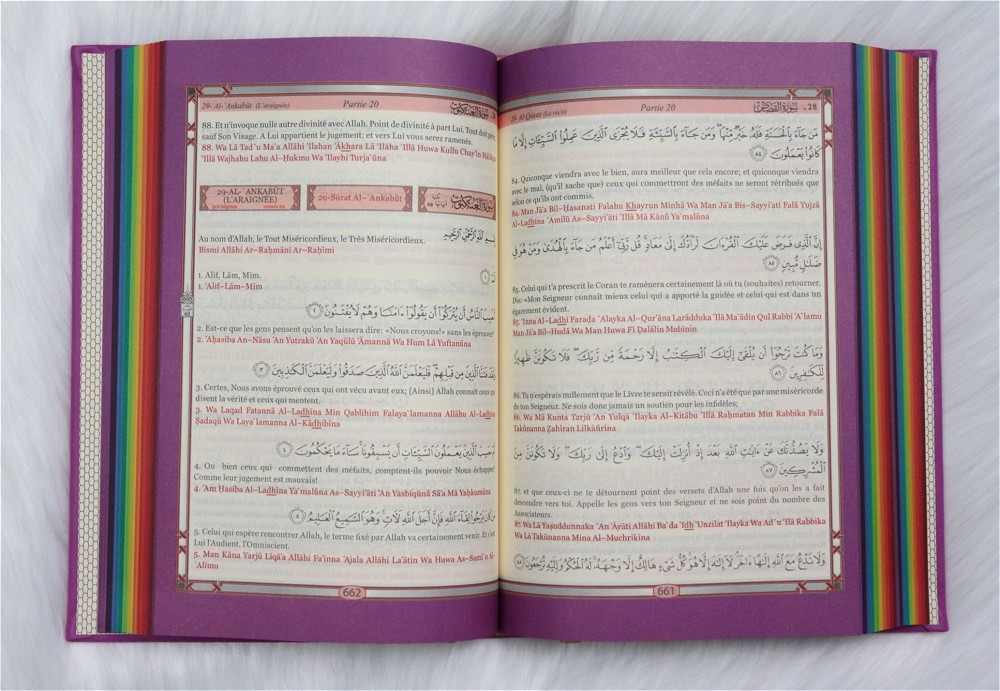 28 - سورة القصص
Partie 20
28- Al-Qaṣaṣ (Le récit)
مَن جَآءَ بِٱلْحَسَنَةِ فَلَهُۥ خَيْرٌ مِّنْهَا ۖ وَمَن جَآءَ بِٱلسَّيِّئَةِ فَلَا يُجْزَى ٱلَّذِينَ عَمِلُوا۟ ٱلسَّيِّـَٔاتِ إِلَّا مَا
كَانُوا۟ يَعْمَلُونَ ٨٤
84. Quiconque viendra avec le bien, aura meilleur que cela encore; et quiconque viendra
avec le mal, (qu'il sache que) ceux qui commettront des méfaits ne seront rétribués que
selon ce qu'ils ont commis.
84. Man Jā'a Bil-Ḥasanati Falahu Khayrun Minhā Wa Man Jā'a Bis-Sayyi'ati Falā Yujzá
Al-Ladhīna `Amilū As-Sayyi'āti 'Illā Mā Kānū Ya`malūna
إِنَّ ٱلَّذِى فَرَضَ عَلَيْكَ ٱلْقُرْءَانَ لَرَآدُّكَ إِلَىٰ مَعَادٍ ۚ قُل رَّبِّىٓ أَعْلَمُ مَن جَآءَ بِٱلْهُدَىٰ وَمَنْ هُوَ فِى
ضَلَـٰلٍ مُّبِينٍ ٨٥
85. Celui qui t'a prescrit le Coran te ramènera certainement là où tu (souhaites) retourner.
Dis: «Mon Seigneur connaît mieux celui qui a apporté la guidée et celui qui est dans un
égarement évident.
85. 'Inna Al-Ladhī Faraḍa `Alayka Al-Qur'āna Larādduka 'Ilá Ma`ādin Qul Rabbī 'A`lamu
Man Jā'a Bil-Hudá Wa Man Huwa Fī Ḍalālin Mubīnin
وَمَا كُنتَ تَرْجُوٓا۟ أَن يُلْقَىٰٓ إِلَيْكَ ٱلْكِتَـٰبُ إِلَّا رَحْمَةً مِّن رَّبِّكَ ۖ فَلَا تَكُونَنَّ ظَهِيرًا
لِّلْكَـٰفِرِينَ ٨٦
86. Tu n'espérais nullement que le Livre te serait révélé. Ceci n'a été que par une miséricorde
de ton Seigneur. Ne sois donc jamais un soutien pour les infidèles;
86. Wa Mā Kunta Tarjū 'An Yulqá 'Ilayka Al-Kitābu 'Illā Raḥmatan Min Rabbika Falā
Takūnanna Žahīran Lilkāfirīna
وَلَا يَصُدُّنَّكَ عَنْ ءَايَـٰتِ ٱللَّهِ بَعْدَ إِذْ أُنزِلَتْ إِلَيْكَ ۖ وَٱدْعُ إِلَىٰ رَبِّكَ ۖ وَلَا تَكُونَنَّ مِنَ
ٱلْمُشْرِكِينَ ٨٧
87. et que ceux-ci ne te détournent point des versets d'Allah une fois qu'on les a fait
descendre vers toi. Appelle les gens vers ton Seigneur et ne sois point du nombre des
Associateurs.
87. Wa Lā Yaṣuddunnaka `An 'Āyāti Allāhi Ba`da 'Idh 'Unzilat 'Ilayka Wa Ad`u 'Ilá Rabbika
Wa Lā Takūnanna Mina Al-Muchrikīna
وَلَا تَدْعُ مَعَ ٱللَّهِ إِلَـٰهًا ءَاخَرَ ۘ لَآ إِلَـٰهَ إِلَّا هُوَ ۚ كُلُّ شَىْءٍ هَالِكٌ إِلَّا وَجْهَهُۥ ۚ لَهُ ٱلْحُكْمُ وَإِلَيْهِ تُرْجَعُونَ ٨٨
661
سورة العنكبوت
Partie 20
29- Al-`Ankabūt (L'araignée)
88. Et n'invoque nulle autre divinité avec Allah. Point de divinité à part Lui. Tout doit périr,
sauf Son Visage. A Lui appartient le jugement; et vers Lui vous serez ramenés.
88. Wa Lā Tad`u Ma`a Allāhi 'Ilahan 'Ākhara Lā 'Ilāha 'Illā Huwa Kullu Chay'in Hālikun
'Illā Wajhahu Lahu Al-Ḥukmu Wa 'Ilayhi Turja`ūna
سورة العنكبوت
29-Sūrat Al-`Ankabūt
29-AL-`ANKABŪT
(L'ARAIGNÉE)
بِسْمِ ٱللَّهِ ٱلرَّحْمَـٰنِ ٱلرَّحِيمِ
Au nom d'Allah, le Tout Miséricordieux, le Très Miséricordieux.
Bismi Allāhi Ar-Raḥmāni Ar-Raḥīmi
1. Alif, Lām, Mīm.
1. 'Alif-Lām-Mīm
أَحَسِبَ ٱلنَّاسُ أَن يُتْرَكُوٓا۟ أَن يَقُولُوٓا۟ ءَامَنَّا وَهُمْ لَا يُفْتَنُونَ ٢
2. Est-ce que les gens pensent qu'on les laissera dire: «Nous croyons!» sans les éprouver?
2. 'Aḥasiba An-Nāsu 'An Yutrakū 'An Yaqūlū 'Āmannā Wa Hum Lā Yuftanūna
وَلَقَدْ فَتَنَّا ٱلَّذِينَ مِن قَبْلِهِمْ ۖ فَلَيَعْلَمَنَّ ٱللَّهُ ٱلَّذِينَ صَدَقُوا۟ وَلَيَعْلَمَنَّ ٱلْكَـٰذِبِينَ ٣
3. Certes, Nous avons éprouvé ceux qui ont vécu avant eux; [Ainsi] Allah connaît ceux qui
disent la vérité et ceux qui mentent.
3. Wa Laqad Fatannā Al-Ladhīna Min Qablihim Falaya`lamanna Allāhu Al-Ladhīna
Ṣadaqū Wa Laya`lamanna Al-Kādhibīna
أَمْ حَسِبَ ٱلَّذِينَ يَعْمَلُونَ ٱلسَّيِّـَٔاتِ أَن يَسْبِقُونَا ۚ سَآءَ مَا يَحْكُمُونَ ٤
4. Ou bien ceux qui commettent des méfaits, comptent-ils pouvoir Nous échapper?
Comme leur jugement est mauvais!
4. 'Am Ḥasiba Al-Ladhīna Ya`malūna As-Sayyi'āti 'An Yasbiqūnā Sā'a Mā Yaḥkumūna
مَن كَانَ يَرْجُوا۟ لِقَآءَ ٱللَّهِ فَإِنَّ أَجَلَ ٱللَّهِ لَـَٔاتٍ ۚ وَهُوَ ٱلسَّمِيعُ ٱلْعَلِيمُ ٥
5. Celui qui espère rencontrer Allah, le terme fixé par Allah va certainement venir. Et c'est
Lui l'Audient, l'Omniscient.
5. Man Kāna Yarjū Liqā'a Allāhi Fa'inna 'Ajala Allāhi La'ātin Wa Huwa As-Samī`u Al-
`Alīmu
662